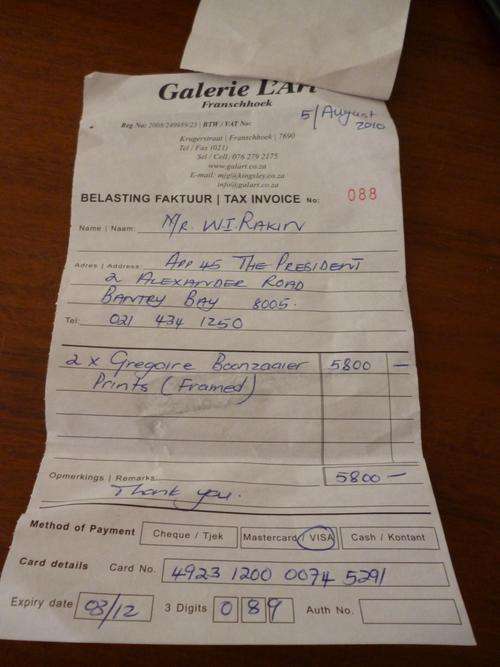 Galerie L'Art
Franschhoek
5/August
2010
Reg No: 2008/249989/23 | BTW / VAT No:
Krugerstraat | Franschhoek | 7690
Tel / Fax (021)
Sel / Cell: 076 279 2175
www.galart.co.za
E-mail: mjg@kingsley.co.za
info@galart.co.za
BELASTING FAKTUUR | TAX INVOICE No: 088
Name | Naam: Mr. W.I. Rakin
Adres | Address: App 45 The President
2 Alexander Road
Bantry Bay 8005.
Tel: 021 434 1250
2 x Gregoire Boonzaaier 5800 —
Prints (Framed)
Opmerkings | Remarks: 5800 —
Thank you.
Method of Payment Cheque / Tjek Mastercard / VISA Cash / Kontant
Card details Card No. 4923 1200 0074 5291
Expiry date 03/12 3 Digits 0 89 Auth No.